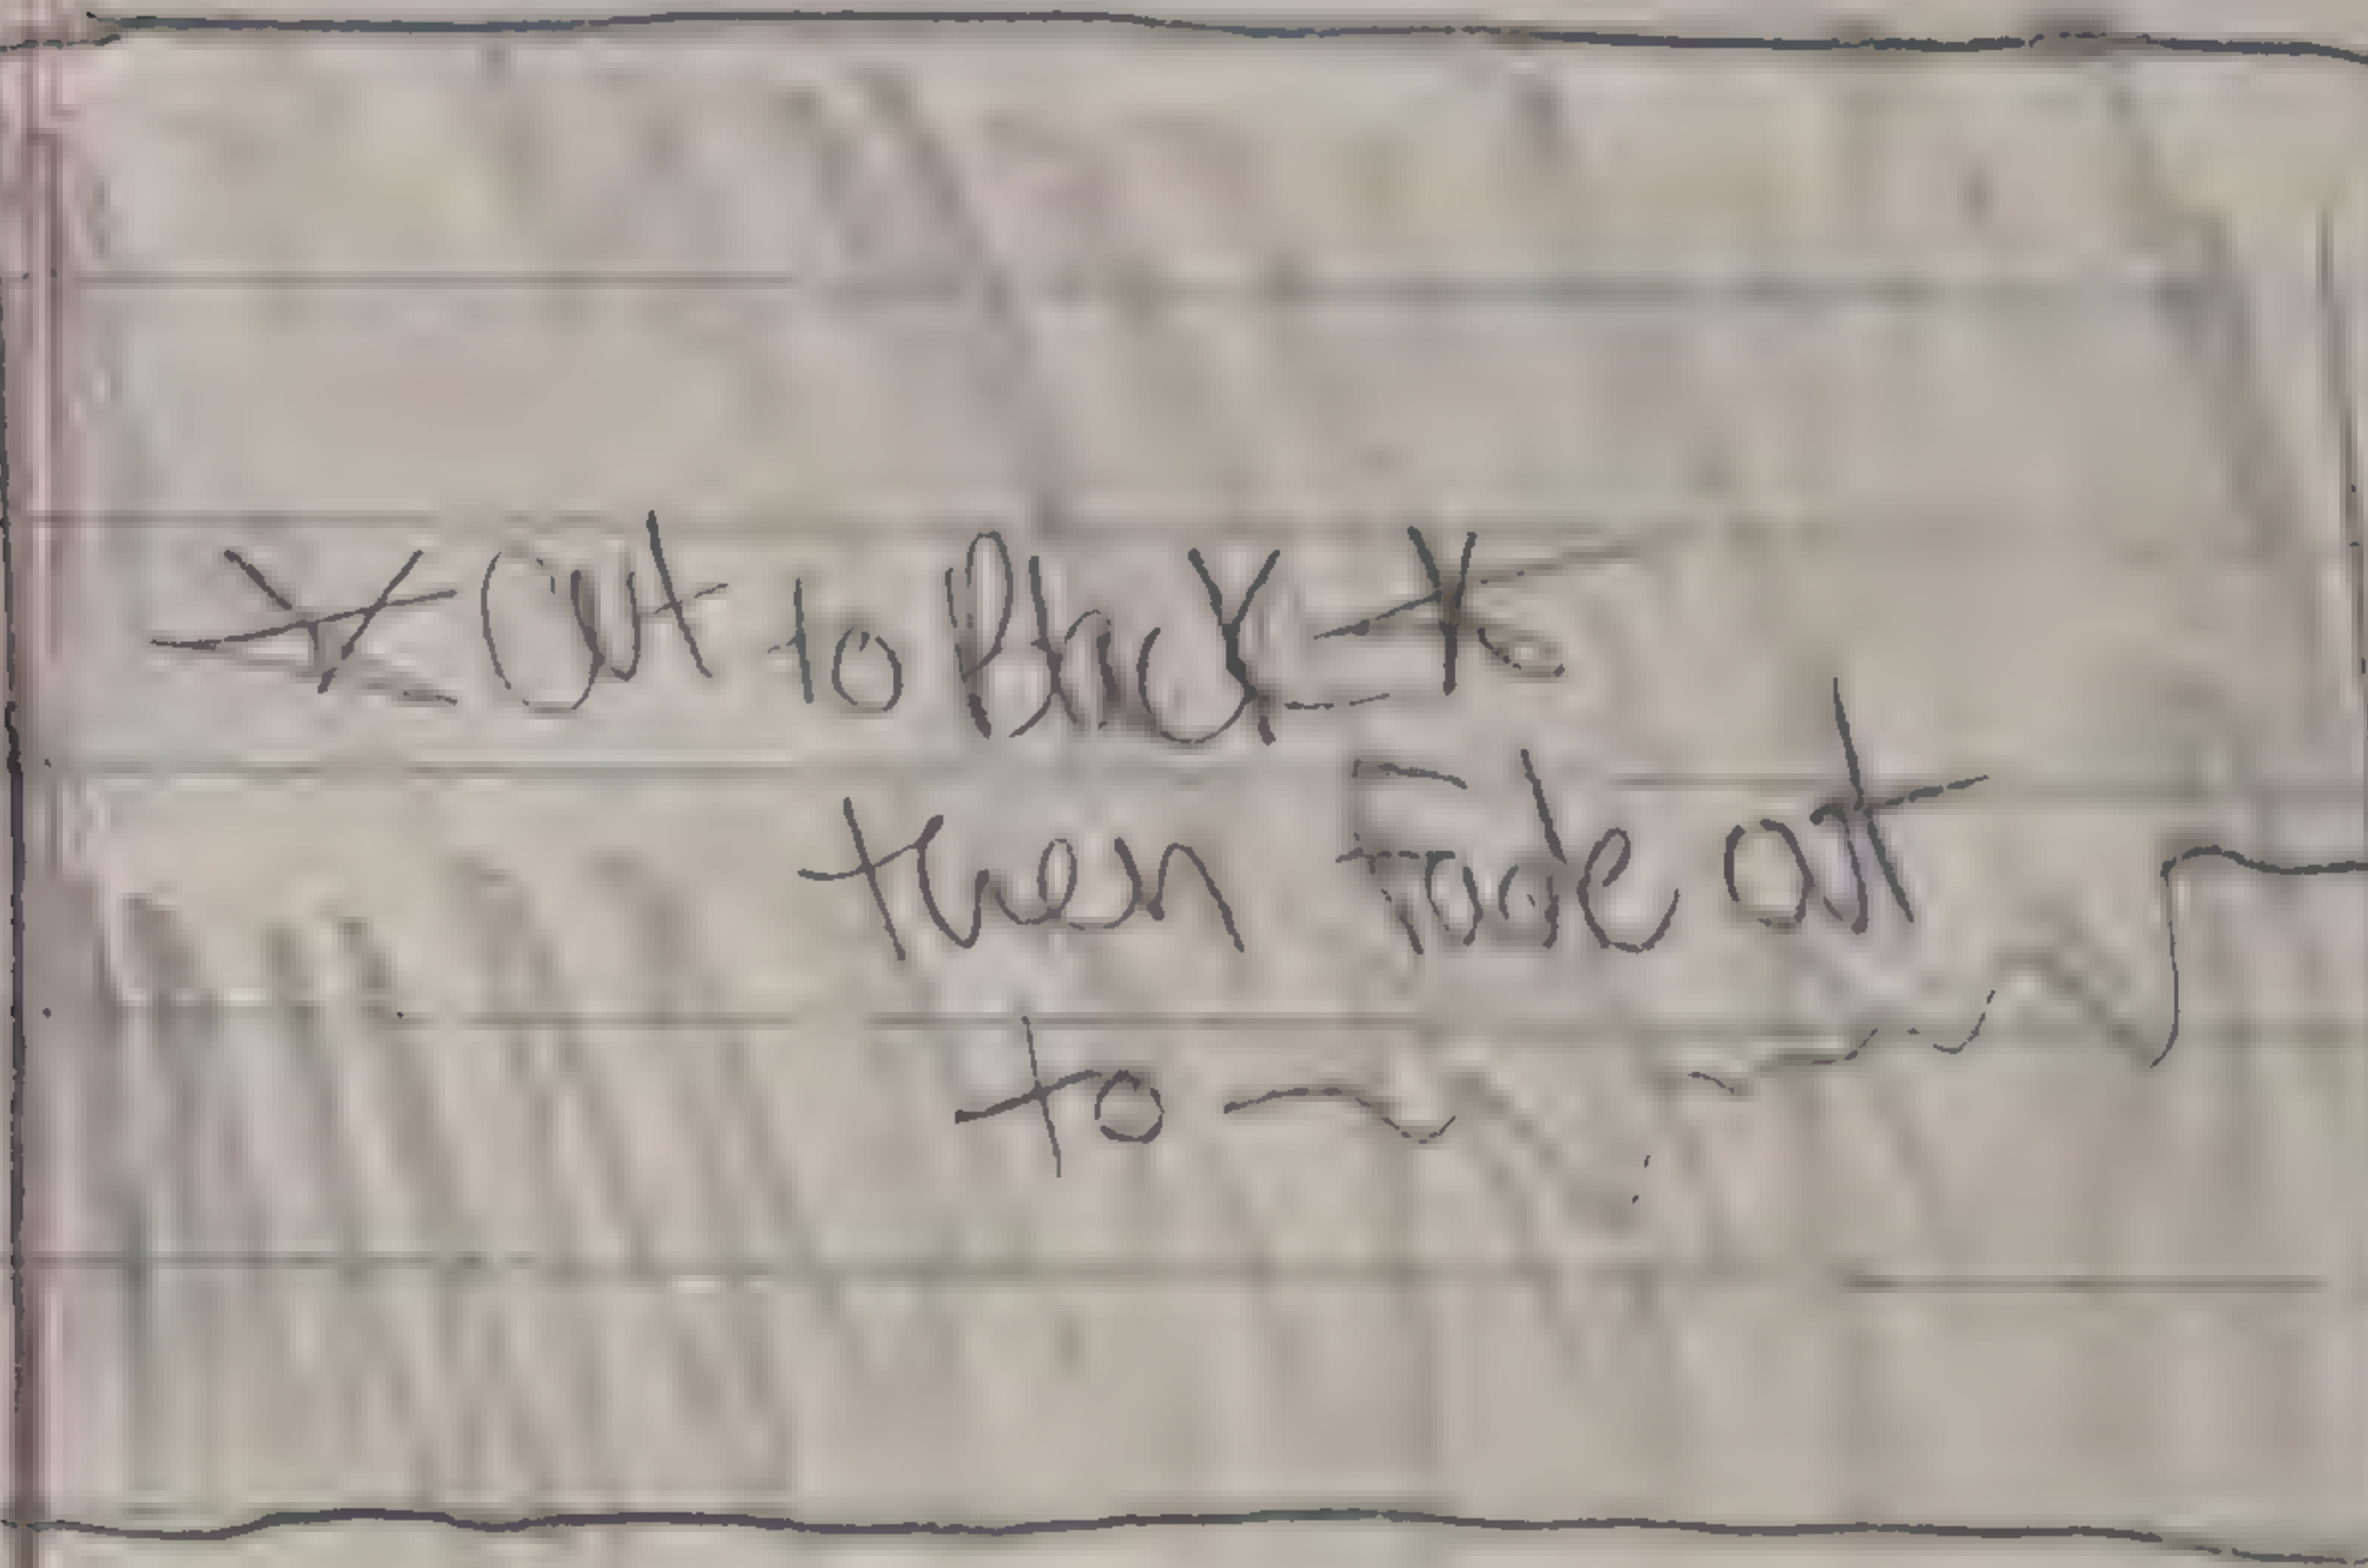 * Cut to Black *
then Fade out
to